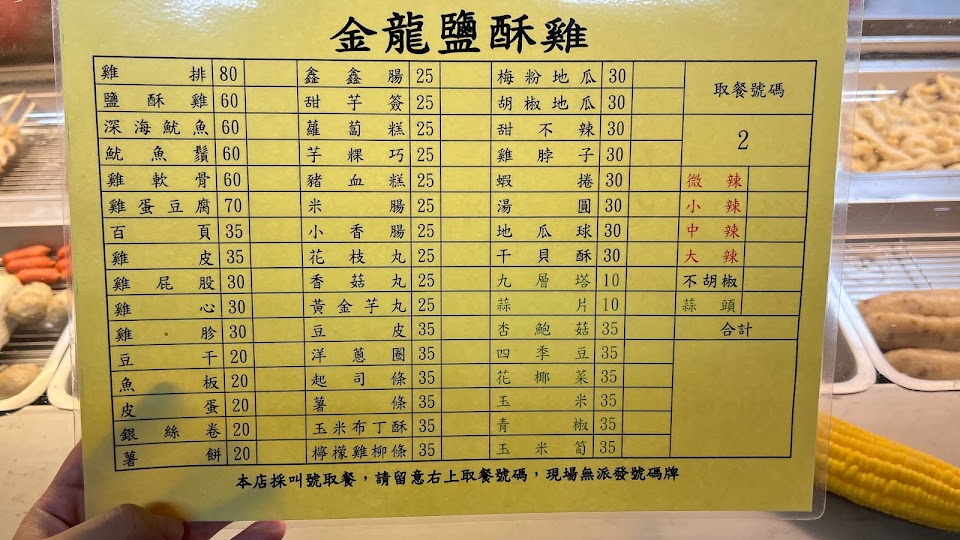 金龍鹽酥雞
雞排 80 鑫鑫腸 25 梅粉地瓜 30 取餐號碼
鹽酥雞 60 甜芋簽 25 胡椒地瓜 30
深海魷魚 60 蘿蔔糕 25 甜不辣 30 2
魷魚鬚 60 芋粿巧 25 雞脖子 30
雞軟骨 60 豬血糕 25 蝦捲 30 微辣
雞蛋豆腐 70 米腸 25 湯圓 30 小辣
百頁 35 小香腸 25 地瓜球 30 中辣
雞皮 35 花枝丸 25 干貝酥 30 大辣
雞屁股 30 香菇丸 25 九層塔 10 不胡椒
雞心 30 黃金芋丸 25 蒜片 10 蒜頭
雞胗 30 豆皮 35 杏鮑菇 35 合計
豆干 20 洋蔥圈 35 四季豆 35
魚板 20 起司條 35 花椰菜 35
皮蛋 20 薯條 35 玉米 35
銀絲卷 20 玉米布丁酥 35 青椒 35
薯餅 20 檸檬雞柳條 35 玉米筍 35
本店採叫號取餐，請留意右上取餐號碼，現場無派發號碼牌